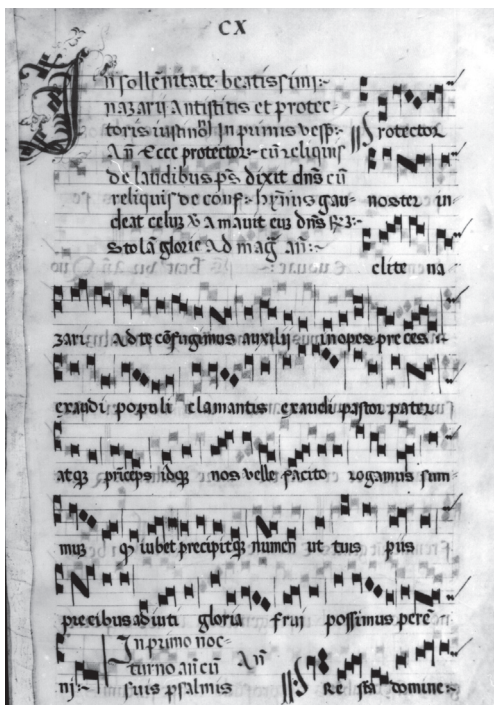 CX
In sollēnitate beatissimi:~
nazarij Antistitis et protec-
toris iustinopl In primis vesp̄:~
Añ Ecce protector~ cū reliquis
Protector
de laudibus pš dixit dñs cū
reliquis de conf:~ hȳmnus gau-
noster in
deat celū: ℣ Amavit eū dñs ℟:~
Stolā glorie Ad mag̃ añ:~
clite na
zarij Ad te cōfugimus auxilij inopes preces
exaudi populi clamantis exaudi pastor pater
atqȝ prīceps idqȝ nos velle facito rogamus sum
mus qȝ iubet precipitqȝ numen ut tuis piis
precibus adiuti gloria frui possimus perē
In primo noc-
turno añ cū Añ
ni:~ suis psalmis Re ista domine:~